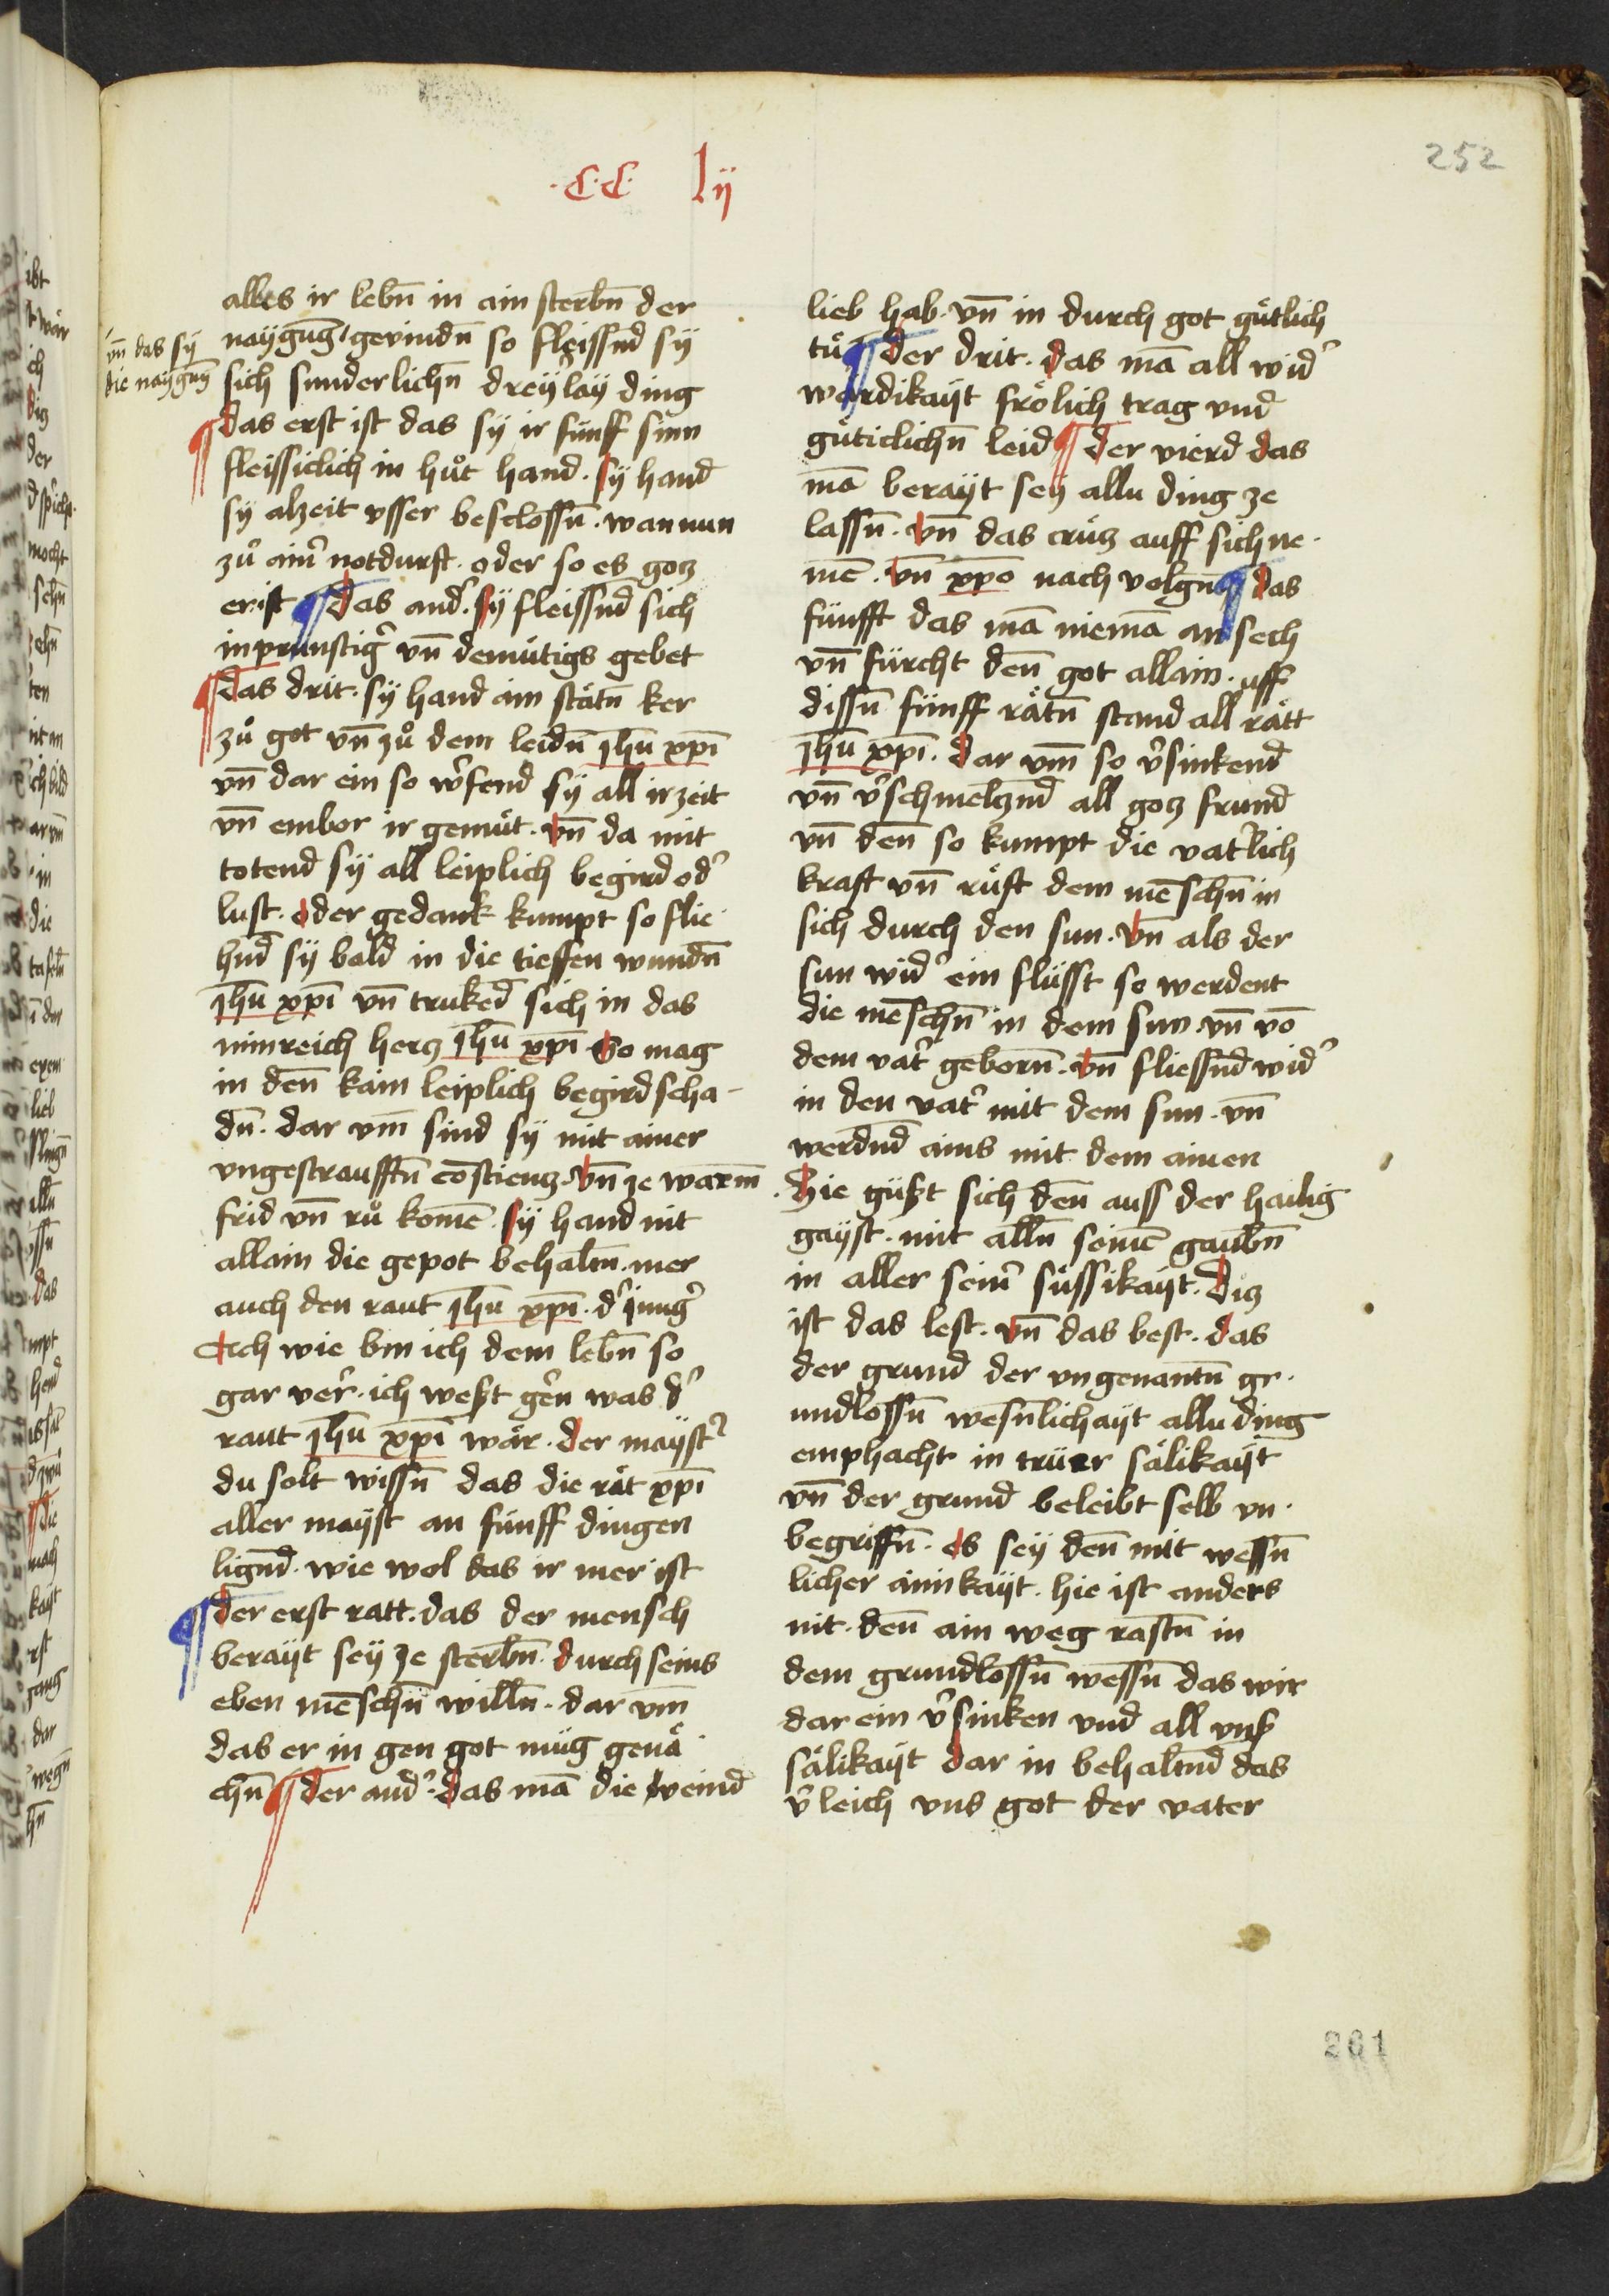 252
·C·C· lij
vn̄ das sÿ
die naygung
alles ir lebn̄ in ain sterbn̄ der
naygung gevindn̄ so fleissnd sÿ
sich sunderlichn̄ dreÿ lay ding
¶ das erst ist das sÿ ir fünff sinn
fleissiclich in hůt hand · sÿ hand
sÿ alzeit vsser beslossn̄ · wan nun
zů ain̾ notdurft · oder so es gotz
er ist ¶ Das and̾ · sÿ fleissnd sich
inprünstig̾ vn̄ demütigs gebet
¶ das drit · sÿ hand ain stätn̄ ker
zů got vn̄ zů dem leidn̄ jhū xp̄i
vn̄ dar ein so w̾fend sÿ all ir zeit
vn̄ embor ir gemüt · vn̄ da mit
totend sÿ all leiplich begird od̾
lust · oder gedank kumpt so flie
hnd sÿ bald in die tieffen wundn̄
jhū xp̄i vn̄ truked sich in das
minreich hertz jhū xp̄i So mag
in den̄ kain leiplich begird scha-
dn̄ · dar vm̄ sind sÿ mit ainer
vngestraufftn̄ conscientz · vn̄ ze warm̄
frid vn̄ rů komē · sÿ hand nit
allain die gepot behaltn̄ · mer
auch den raut jhū xp̄i · d̾ jung̾
Ach wie bin ich dem lebn̄ so
gar ver̾ · ich west gern̄ was d̾
raut jhū xp̄i wär · der mayst̾
du solt wissn̄ das die rät xp̄i
aller mayst an fünff dingen
lignd · wie wol das ir mer ist
¶ der erst ratt · das der mensch
berayt seÿ ze sterbn̄ · durch seins
eben mēschn̄ willn̄ · dar vm̄
das er in gen got müg genä
chn̄ ¶ der and̾ · das mā die veind
lieb hab · vn̄ in durch got gütlich
tü ¶ der drit · das mā all wid̾
wardikayt frölich trag vnd
güticlichn̄ leid ¶ der vierd das
mā berayt seÿ allu ding ze
lassn̄ · vn̄ das crütz auff sich ne·
mē · vn̄ xp̄o nach volgn̄ ¶ das
fünfft das mā niemā an sech
vn̄ fürcht den̄ got allain · uff
dissn̄ fünff rätn̄ stand all rätt
jhū xp̄i · dar vm̄ so v̾sinkend
vn̄ v̾schmeltznd all gotz frund
vn̄ den̄ so kumpt die vat̾lich
kraft vn̄ rüft dem mēschn̄ in
sich durch den sun · vn̄ als der
sun wid̾ ein flüsst so werdent
die mēschn̄ in dem sun · vn̄ vō
dem vat̾ geborn̄ · vn̄ fliessnd wid̾
in den vat̾ mit dem sun · vn̄
werdnd ains mit dem ainen
Hie güsst sich den̄ auss der hailig
gayst · mit alln̄ seinē gaubn̄
in aller sein̾ süssikayt · Ditz
ist das lest · vn̄ das best · das
der grund der vngenantn̄ gr·
undlossn̄ wesn̄lichayt allu ding
emphacht in trüer sälikayt
vn̄ der grund beleibt selb vn·
begriffn̄ · es seÿ den̄ mit wessn̄
licher ainkayt · hie ist anders
nit · den̄ ain weg rastn̄ in
dem grundlossn̄ wessn̄ das wir
dar ein v̾sinken vnd all vnss
sälikayt dar in behaltnd das
v̾leich vns got der vater
261